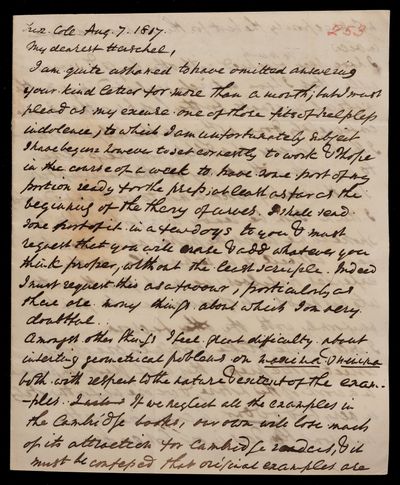 Trin. Coll. Aug. 7. 1817. 253
My dearest Herschel,
I am quite ashamed to have omitted answering
your kind letter for more than a month, but I must
plead as my excuse one of those fits of helpless
indolence, to which I am unfortunately subject
I have begun however to set earnestly to work & I hope
in the course of a week to have some part of my
portion ready for the press, at least as far as the
beginning of the theory of curves. I shall send
some part of it in a few days to you & must
request that you will erase & add whatever you
think proper, without the least scruple. Indeed
I must request this as a favour, particularly as
there are many things about which I am very
doubtful.
Amongst other things I feel great difficulty about
inserting geometrical problems on maxima & minima
both with respect to the nature & extent of the exam-
-ples. If we neglect all the examples in
the Cambridge books, our own will lose much
of its attraction for Cambridge readers, & it
must be confessed that original examples are